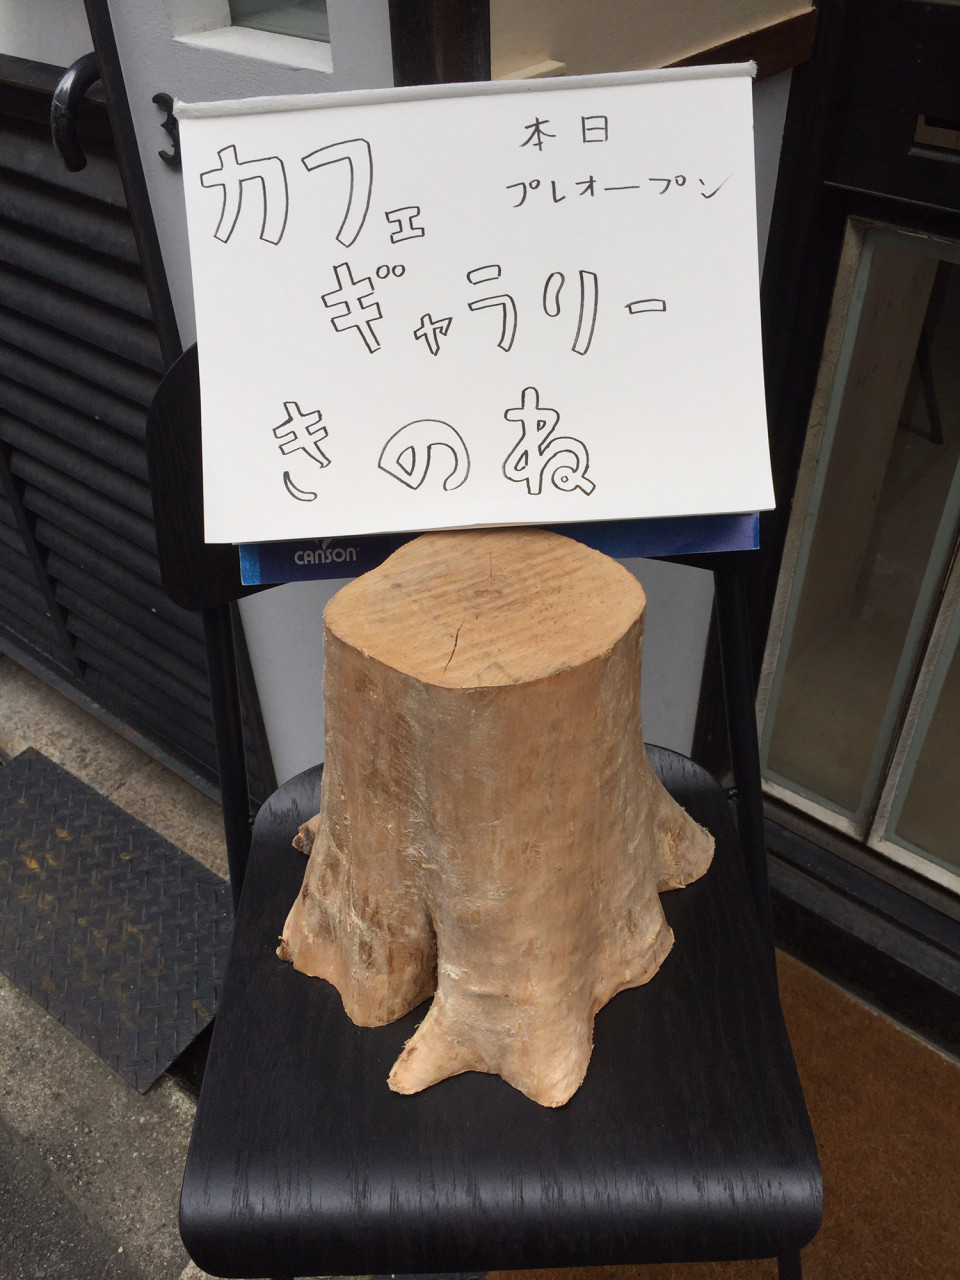 カフェ
本日
プレオープン
ギャラリー
きのね
CANSON